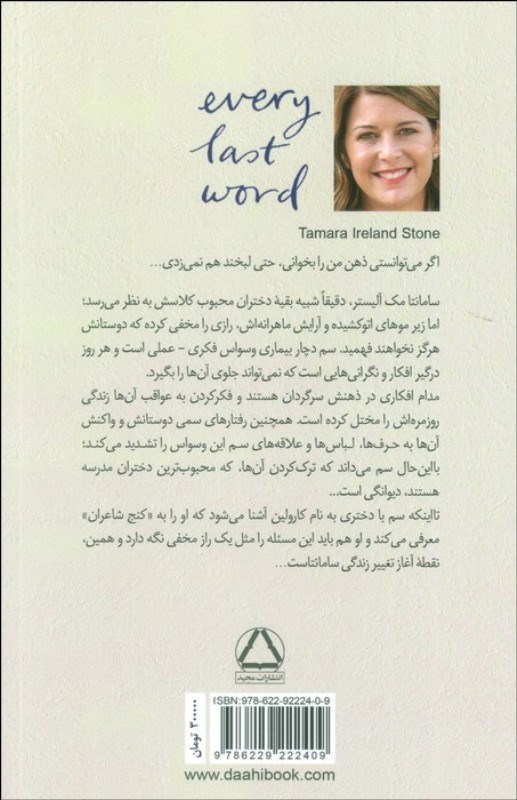 every
last
word
Tamara Ireland Stone
اگر می‌توانستی ذهن من را بخوانی، حتی لبخند هم نمی‌زدی...
سامانتا مک آلیستر، دقیقاً شبیه بقیهٔ دختران محبوب کلاسش به نظر می‌رسد؛
اما زیر موهای اتوکشیده و آرایش ماهرانه‌اش، رازی را مخفی کرده که دوستانش
هرگز نخواهند فهمید. سم دچار بیماری وسواس فکری - عملی است و هر روز
درگیر افکار و نگرانی‌هایی است که نمی‌تواند جلوی آن‌ها را بگیرد.
مدام افکاری در ذهنش سرگردان هستند و فکرکردن به عواقب آن‌ها زندگی
روزمره‌اش را مختل کرده است. همچنین رفتارهای سمی دوستانش و واکنش
آن‌ها به حرف‌ها، لباس‌ها و علاقه‌های سم این وسواس را تشدید می‌کند؛
بااین‌حال سم می‌داند که ترک‌کردن آن‌ها، که محبوب‌ترین دختران مدرسه
هستند، دیوانگی است...
تااینکه سم با دختری به نام کارولین آشنا می‌شود که او را به «کنج شاعران»
معرفی می‌کند و او هم باید این مسئله را مثل یک راز مخفی نگه دارد و همین،
نقطهٔ آغاز تغییر زندگی سامانتاست...
انتشارات مجید
ISBN:978-622-92224-0-9
9 786229 222409
۳۰۰۰۰۰ تومان
www.daahibook.com